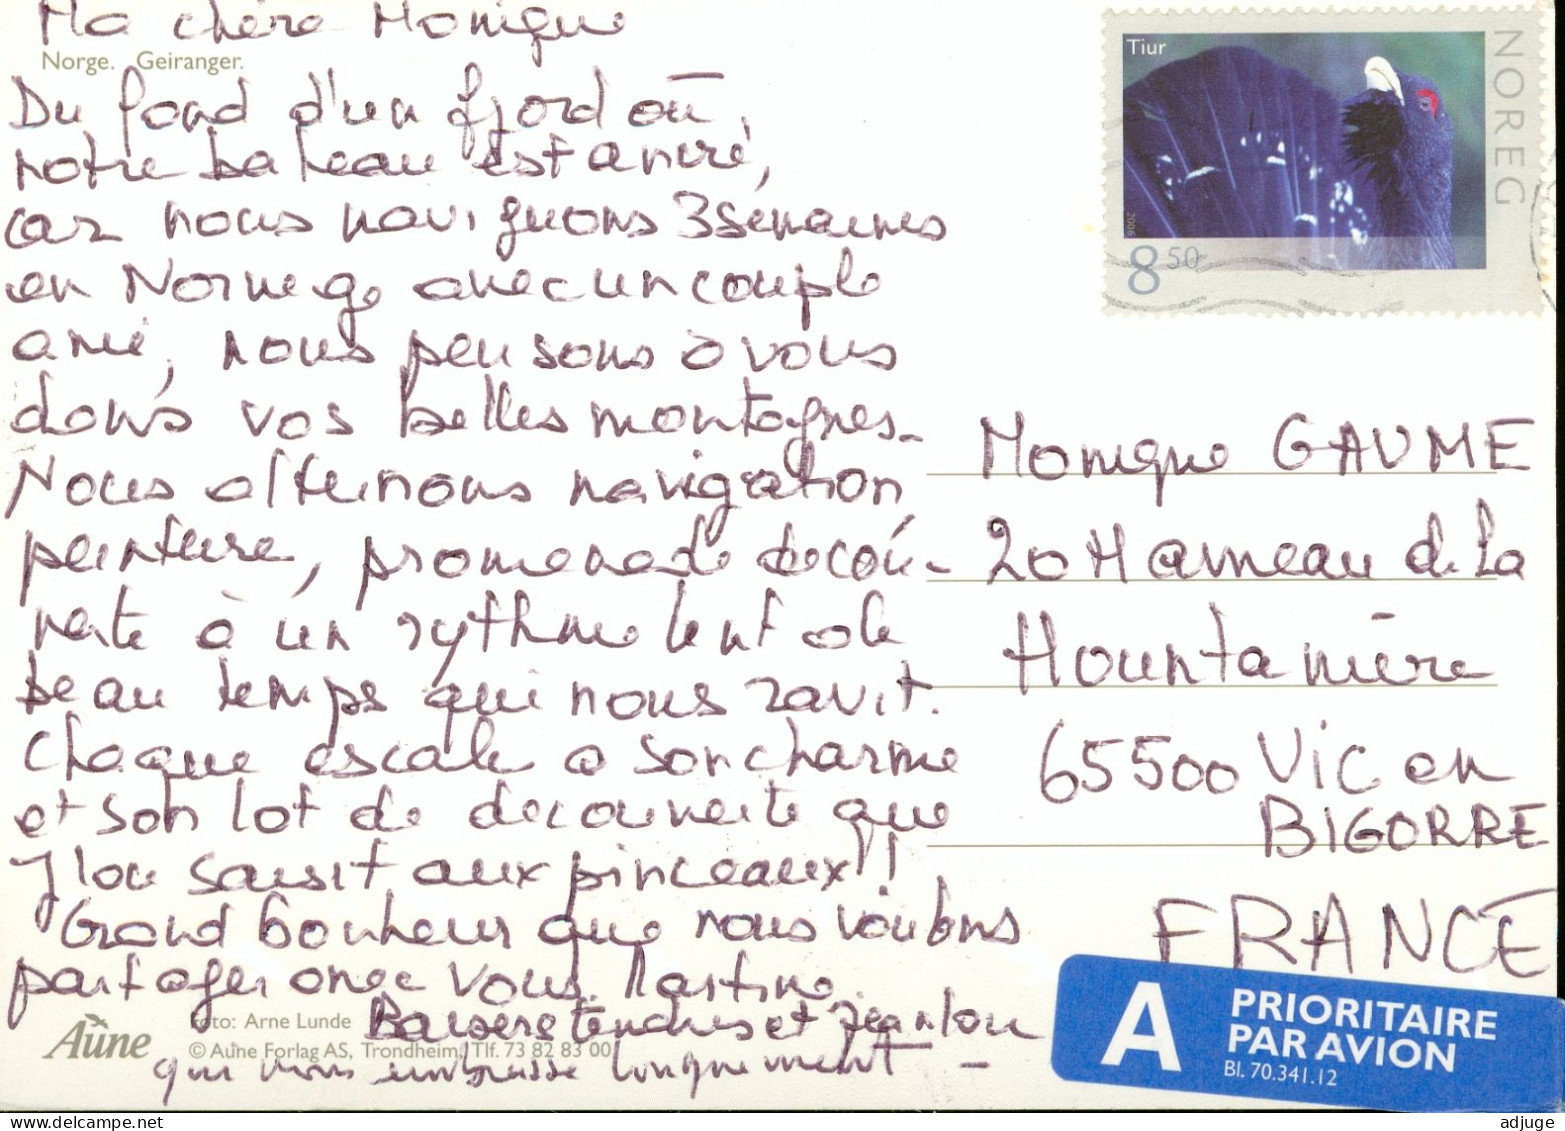 Ma chère Monique
Norge. Geiranger.
Du fond d'un fjord où,
notre bateau est ancré,
car nous naviguons 3 semaines
en Norvege avec un couple
ami, nous pensons à vous
dans vos belles montagnes.
Nous alternons navigation,
peinture, promenade decou-
verte à un rythme lent de
beau temps qui nous ravit.
Chaque escale a son charme
et son lot de decouverte que
J lou saisit aux pinceaux!!
Grand bonheur que nous voulons
partager avec vous. Martine
Baisers tendres et Jean lou
qui vous embrasse longuement -
Aune
Foto: Arne Lunde
© Aune Forlag AS, Trondheim. Tlf. 73 82 83 00
Tiur
NOREG
2006
8 50
Monique GAUME
20 Hameau de la
Hountanière
65500 Vic en
BIGORRE
FRANCE
A PRIORITAIRE
PAR AVION
Bl. 70.341.12
delcampe.net
adjuge